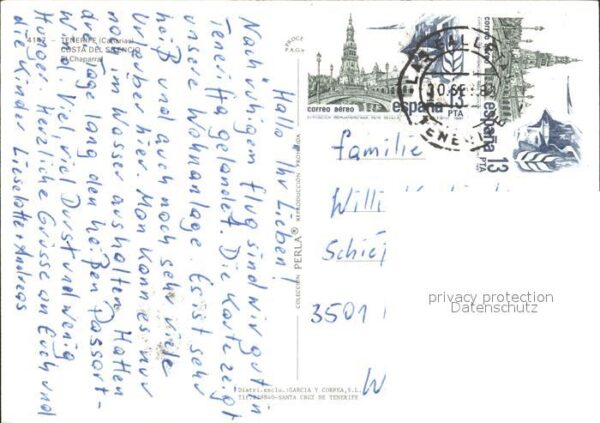 4187 - TENERIFE (Canarias)
COSTA DEL SILENCIO
El Chaparral
Hallo Ihr Lieben!
Nach ruhigem Flug sind wir gut in
Teneriffa gelandet. Die Karte zeigt
unsere Wohnanlage. Es ist sehr
heiß und auch noch sehr viele
Urlauber hier. Man kann es nur
noch im Wasser aushalten. Hatten
Tage lang den heißen Passat-
wind. Viel, viel Durst und wenig
Hunger. Herzliche Grüsse an Euch und
die Kinder Lieselotte + Andreas
COLECCION PERLA® REPRODUCCION PROHIBIDA
correo aéreo
españa
13
PTA
correo aéreo
españa
13
PTA
TENERIFE
Familie
Willi
Schie
3501
W
privacy protection
Datenschutz
Distri.exclu.:GARCIA Y CORREA,S.L.
SANTA CRUZ DE TENERIFE